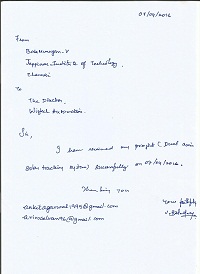 07/04/2016
From
Balamurugan.V
Jeppiaar Institute of Technology,
Chennai
To
The Director,
Automation.
Sir,
I have received my project (Dual axis
Solar tracking system) Successfully on 07/04/2016.
Thanking you
Your faithfully
ankitagarwal1995@gmail.com
@gmail.com